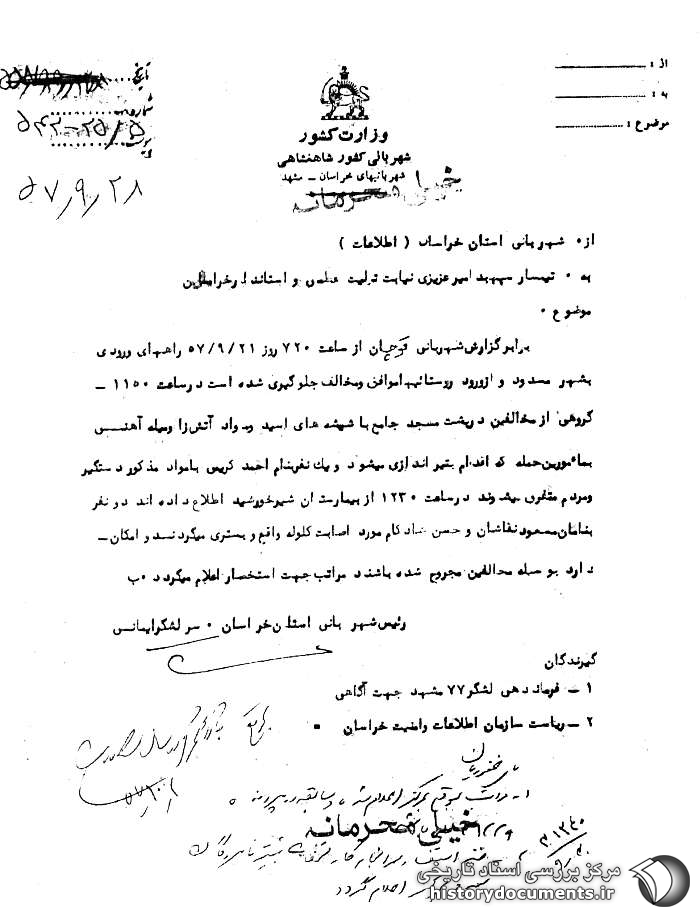 از :
به :
موضوع :
تاریخ
شماره
پیوست
۵۴۲-۲۵/۵
۵۷/۹/۲۸
وزارت کشور
شهربانی کشور شاهنشاهی
شهربانیهای خراسان - مشهد
خیلی محرمانه
از ۰ شهربانی استان خراسان ( اطلاعات )
به ۰ تیمسار سپهبد امیر عزیزی نیابت تولیت عظمی و استاندار خراسان
موضوع ۰
برابر گزارش شهربانی قوچان از ساعت ۷۲۰ روز ۵۷/۹/۲۱ راههای ورودی
بشهر مسدود و ازورود روستائیهاموافق ومخالف جلوگیری شده است درساعت ۱۱۵۰ -
گروهی از مخالفین درپشت مسجد جامع با شیشه های اسید ومواد آتش زا وسیله آهنین
بمأمورین حمله که اقدام بتیر اندازی میشود و یك نفربنام احمد کریمی بامواد مذکور دستگیر
ومردم متفرق میشوند درساعت ۱۲۳۰ از بیمارستان شیرخورشید اطلاع داده اند دو نفر
بنامان مسعود نقاشان و حسن شادکام مورد اصابت گلوله واقع و بستری میگردند و امکان -
دارد بوسیله مخالفین مجروح شده باشند مراتب جهت استحضار اعلام میگردد ۰ب
رئیس شهربانی استان خراسان ۰ سرلشگر ایمانی
گیرندگان
۱ - فرماندهی لشگر ۷۷ مشهد جهت آگاهی
۲ - ریاست سازمان اطلاعات وامنیت خراسان
خیلی محرمانه
مرکز بررسی اسناد تاریخی
historydocuments.ir